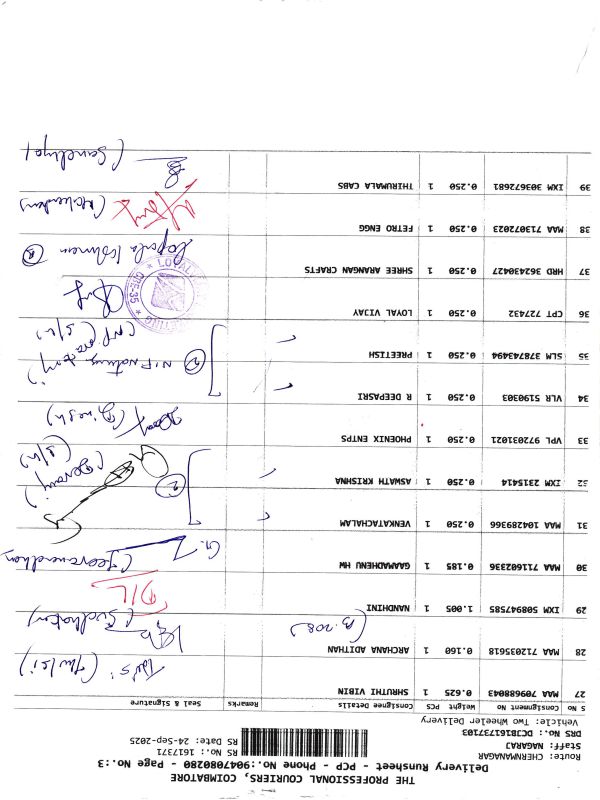 THE PROFESSIONAL COURIERS, COIMBATORE
Delivery Runsheet - PCP - Phone No.:9047080280 - Page No.:3
Route: CHERMWANAGAR
Staff: NAGARAJ
DRS No.: DCJB161737103
Vehicle: Two Wheeler Delivery
RS No.: 1617371
RS Date: 24-Sep-2025
S No Consignment No Weight PCS Consignee Details Remarks Seal & Signature
27 MAA 709688043 0.625 1 SHRUTHI VIBIN
28 MAA 712035618 0.160 1 ARCHANA ADITHAN (B.208)
29 IXM 508947585 1.005 1 NANDHINI (Sudhakar)
D/L
30 MAA 711602336 0.185 1 GAAMADHENU HW (Jeevanandhan
31 MAA 104289366 0.250 1 VENKATACHALAM
32 IXM 2315414 0.250 1 ASWATH KRISHNA 2 (S/W)
33 VPL 972031021 0.250 1 PHOENIX ENTPS (Jinesh)
34 VLR 5190303 0.250 1 R DEEPASRI
35 SLM 378743494 0.250 1 PREETISH 2 (S/W)
36 CPT 727432 0.250 1 LOYAL VIJAY
CBE-35
37 HRD 362430427 0.250 1 SHREE ARANGAN CRAFTS
38 MAA 713072023 0.250 1 FETRO ENGG
39 IXM 303672681 0.250 1 THIRUMALA CABS (Sandhya)